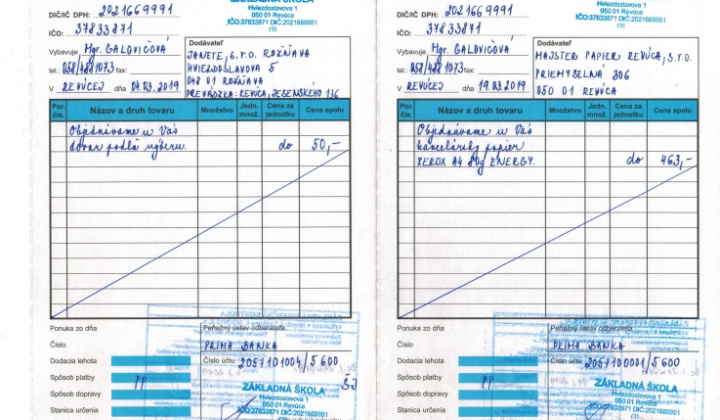 ZÁKLADNÁ ŠKOLA
Hviezdoslavova 1
050 01 Revúca
IČO:37833871 DIČ:2021669991
DIČ/IČ DPH: 2021669991
IČO: 37833871
Vybavuje Mgr. GALOVIČOVÁ
tel. 058/4881073 fax:
V REVÚCEJ dňa 04.03.2019
Dodávateľ
JANETE, s.r.o. ROŽŇAVA
HVIEZDOSLAVOVA 5
048 01 ROŽŇAVA
PREVÁDZKA: REVÚCA, JESENSKÉHO 136
Por. čís. Názov a druh tovaru Množstvo Jedn. množ. Cena za jednotku Cena spolu
Objednávame u Vás
tovar podľa výberu. do 50,-
Ponuka zo dňa
Číslo
Dodacia lehota
Spôsob platby PP
Spôsob dopravy
Stanica určenia
Peňažný ústav odberateľa
PRIMA BANKA
Číslo účtu 2051101004/5600
ZÁKLADNÁ ŠKOLA
Hviezdoslavova 1
050 01 Revúca
IČO:37833871 DIČ:2021669991
Hviezdoslavova 1
050 01 Revúca
IČO:37833871 DIČ:2021669991
DIČ/IČ DPH: 2021669991
IČO: 37833871
Vybavuje Mgr. GALOVIČOVÁ
tel. 058/4881073 fax:
V REVÚCEJ dňa 19.03.2019
Dodávateľ
MAJSTER PAPIER REVÚCA, s.r.o.
PRIEMYSELNÁ 306
050 01 REVÚCA
Por. čís. Názov a druh tovaru Množstvo Jedn. množ. Cena za jednotku Cena spolu
Objednávame u Vás
kancelársky papier
XEROX A4 80g ENERGY. do 463,-
Ponuka zo dňa
Číslo
Dodacia lehota
Spôsob platby PP
Spôsob dopravy
Stanica určenia
Peňažný ústav odberateľa
PRIMA BANKA
Číslo účtu 2051100001/5600
ZÁKLADNÁ ŠKOLA
Hviezdoslavova 1
050 01 Revúca
IČO:37833871 DIČ:2021669991